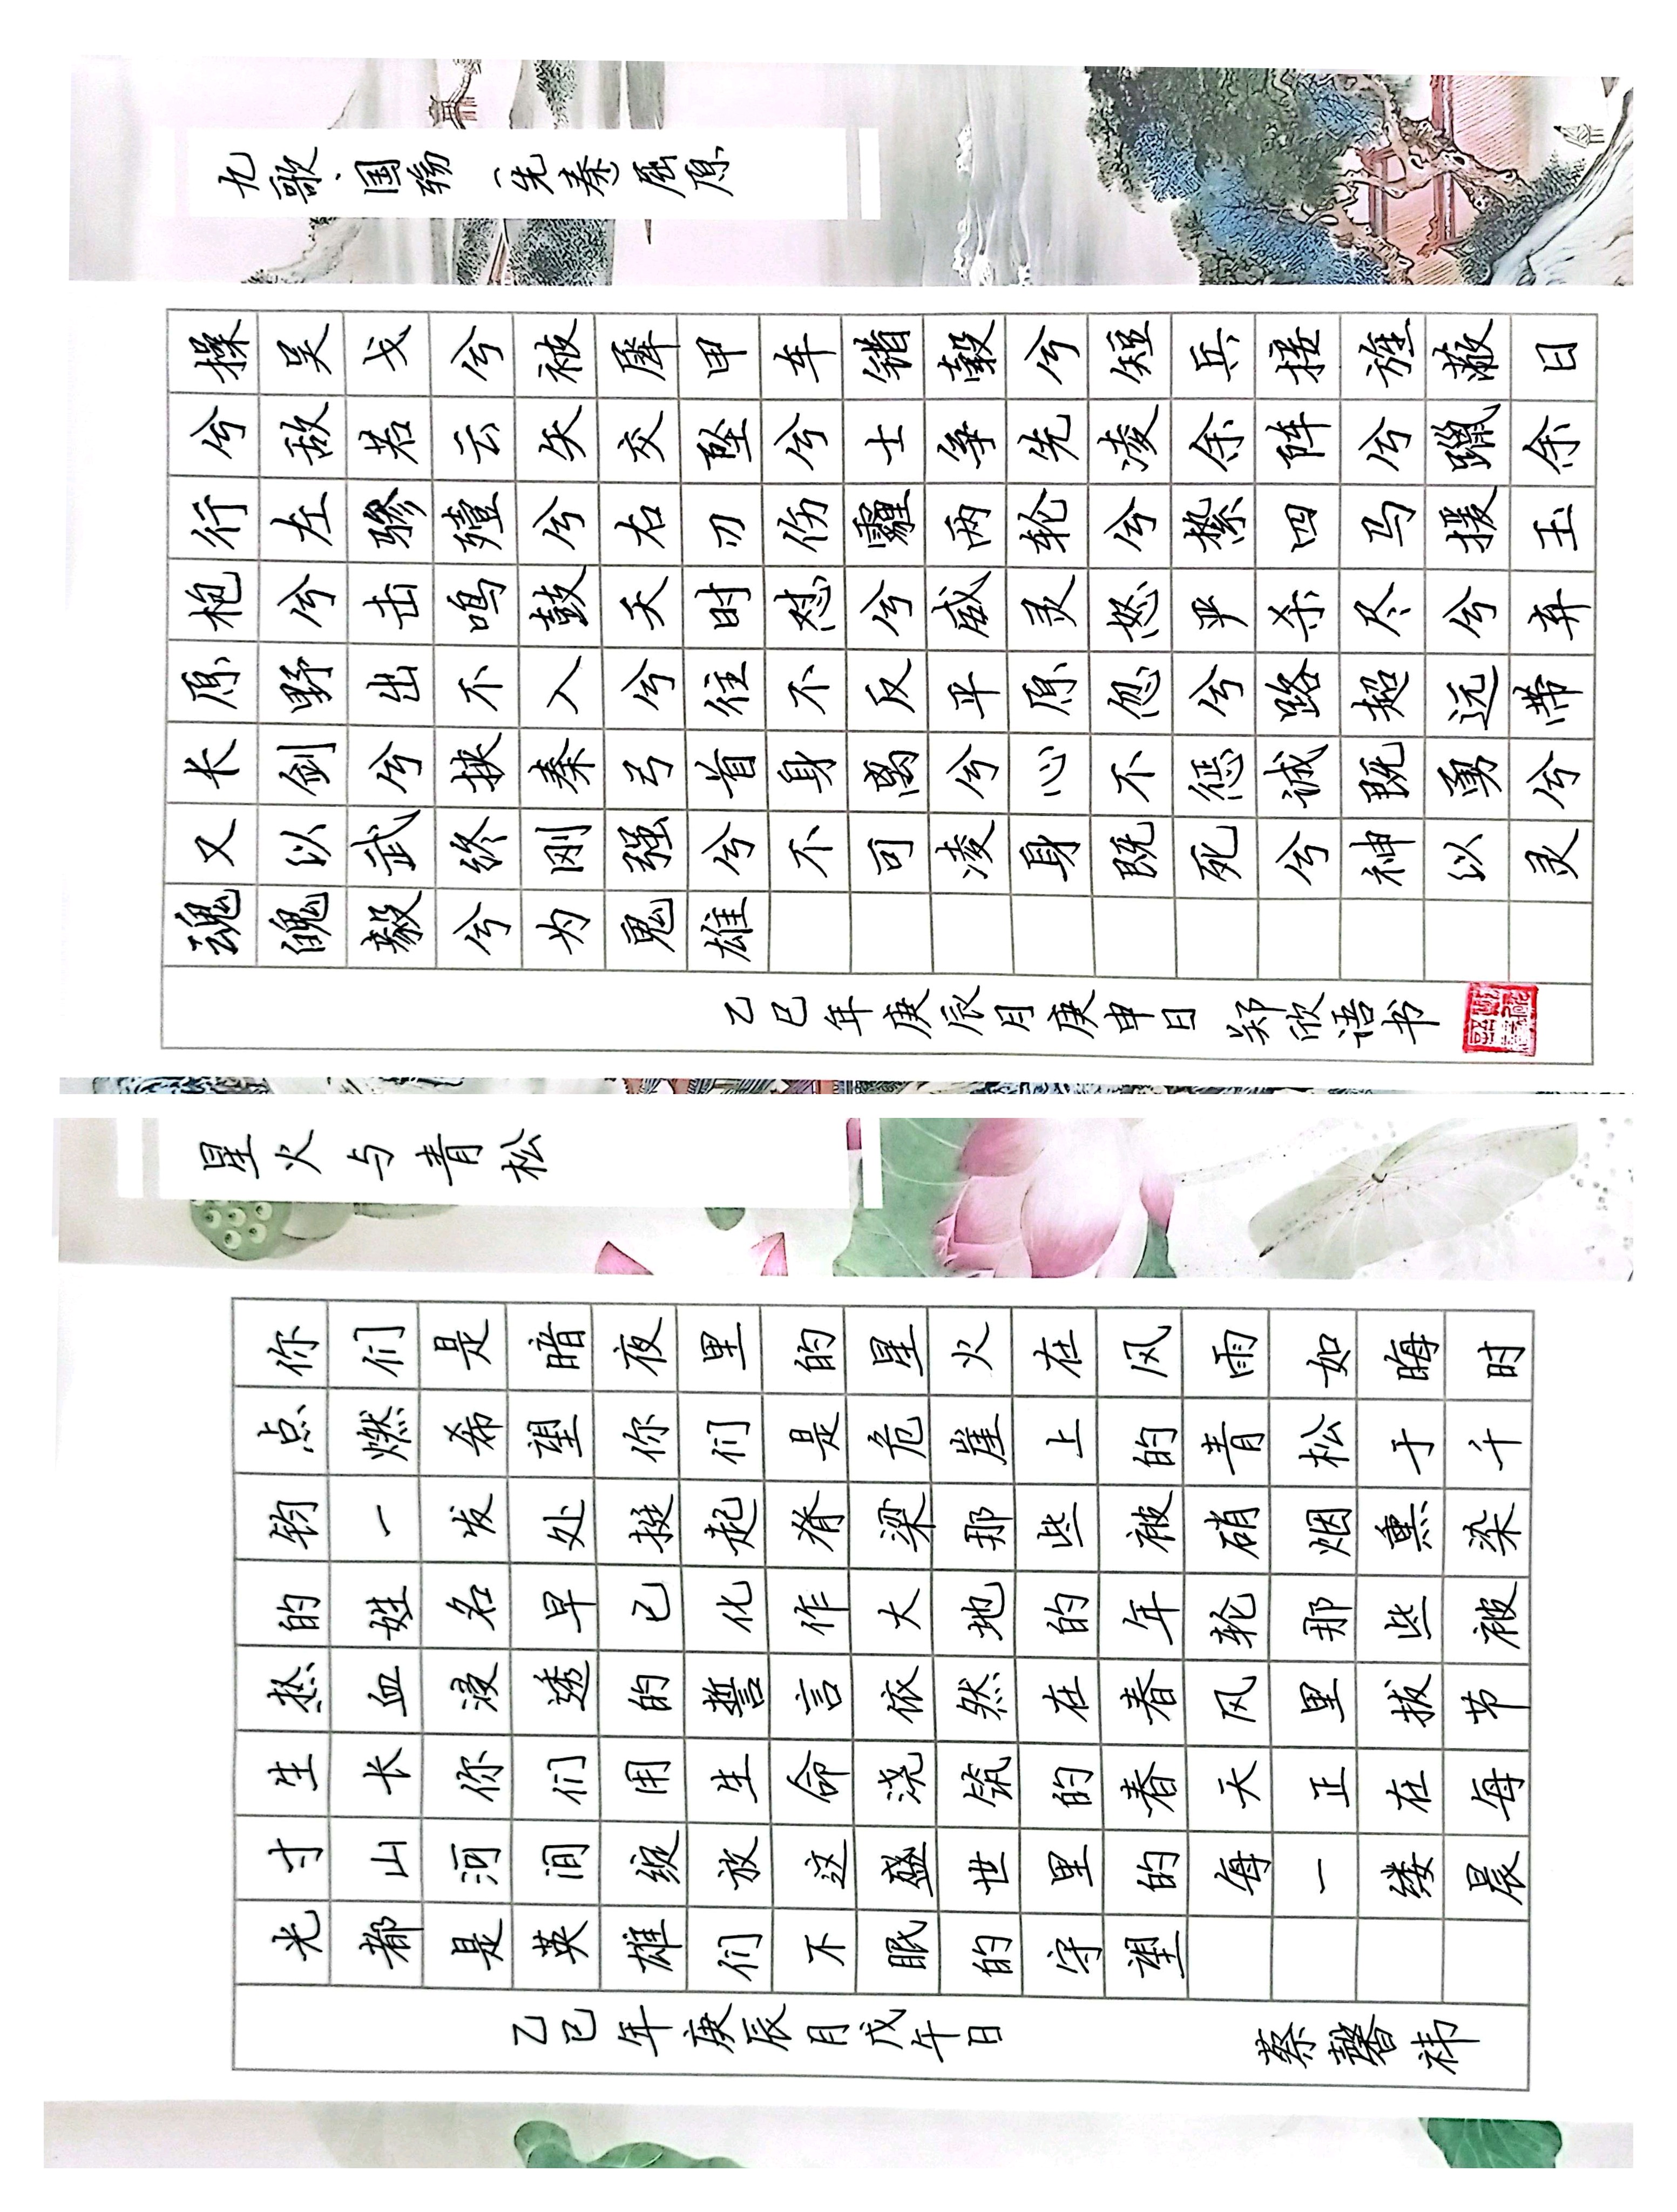 九歌·国殇（先秦）屈原
操吴戈兮被犀甲车错毂兮短兵接旌蔽日
兮敌若云矢交坠兮士争先凌余阵兮躐余
行左骖殪兮右刃伤霾两轮兮絷四马援玉
枹兮击鸣鼓天时怼兮威灵怒严杀尽兮弃
原野出不入兮往不反平原忽兮路超远带
长剑兮挟秦弓首身离兮心不惩诚既勇兮
又以武终刚强兮不可凌身既死兮神以灵
魂魄毅兮为鬼雄
乙巳年庚辰月庚申日 郑欣语书
星火与青松
你们是暗夜里的星火在风雨如晦时
点燃希望你们是危崖上的青松于千
钧一发处挺起脊梁那些被硝烟熏染
的姓名早已化作大地的年轮那些被
热血浸透的誓言依然在春风里拔节
生长你们用生命浇筑的春天正在每
寸山河间绽放这盛世里的每一缕晨
光都是英雄们不眠的守望
乙巳年庚辰月戊午日 蔡馨祎